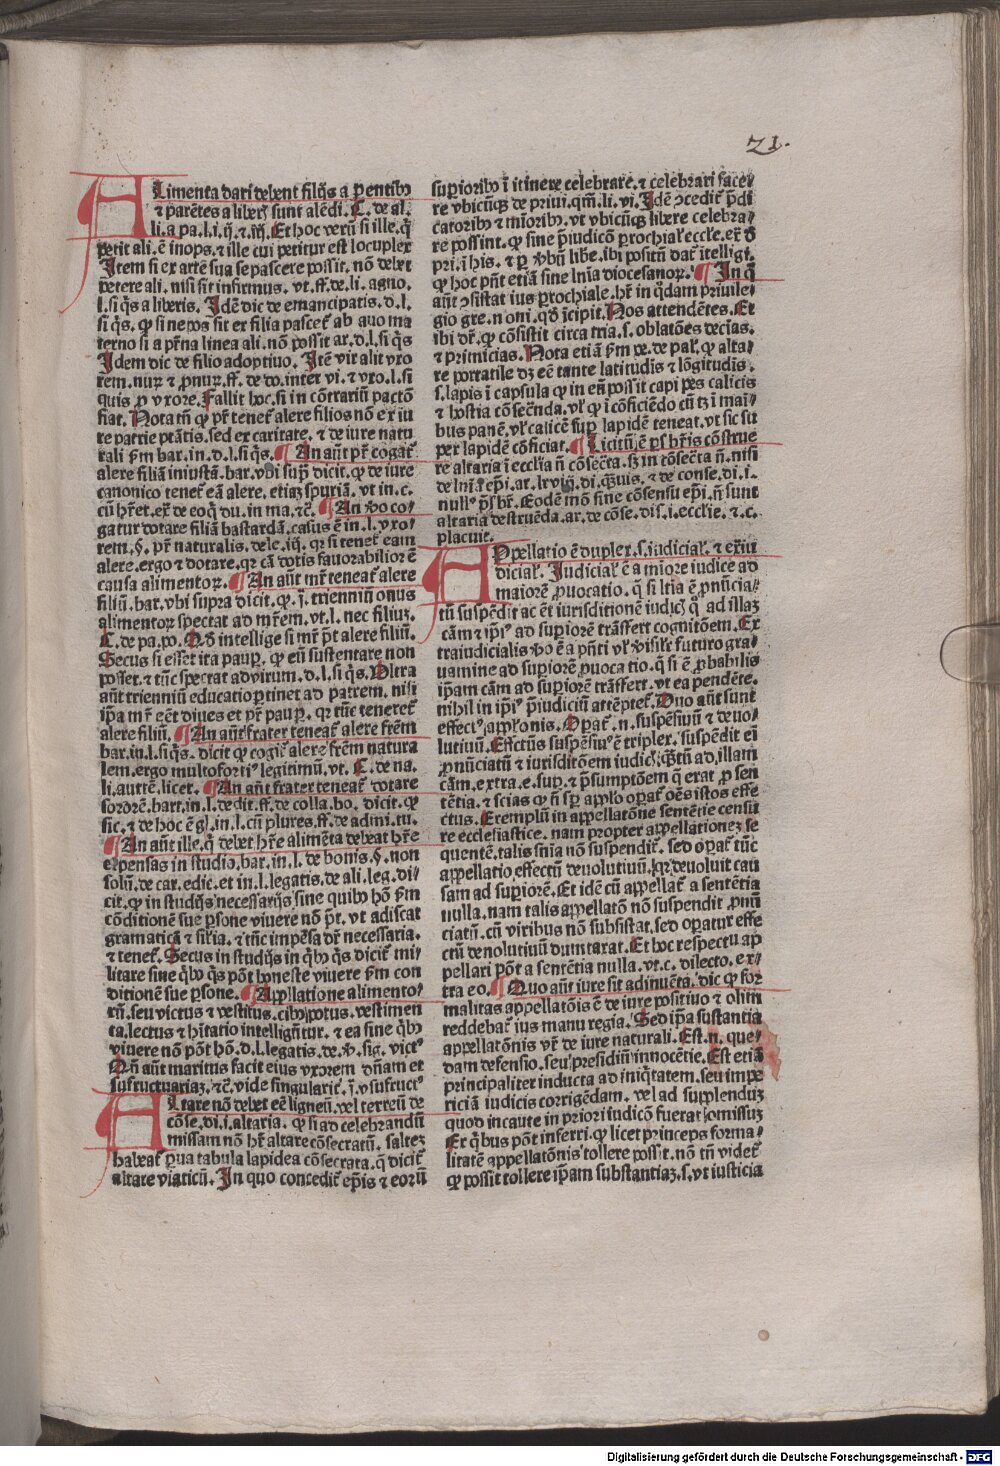 21.
ALimenta dari debent filijs a pentibꝰ
⁊ parētes a liberis sunt alēdi. C. de al.
li. a pa. l. i. ij. ⁊ iij. Et hoc verū si ille. q̄
petit ali. ē inops. ⁊ ille cui petitur est locuplex
Item si ex arte sua se pascere possit. nō debet
petere ali. nisi sit infirmus. vt. ff. de. li. agno.
l. si q̄s a liberis. Idē dic de emancipatis. d. l.
si q̄s. ꝙ si nepos sit ex filia pascet̄ ab auo ma
terno si a pr̄na linea ali. nō possit ar. d. l. si q̄s
Idem dic de filio adoptiuo. Itē vir alit vxo
rem. nuꝝ ⁊ ꝓnuꝝ. ff. de do. inter vi. ⁊ vxo. l. si
quis ꝓ vxore. Fallit hoc. si in cōtrariū pactō
fiat. Nota tn̄ ꝙ pr̄ tenet̄ alere filios nō ex iu
re patrie ptātis. sed ex caritate. ⁊ de iure natu
rali ẜm bar. in. d. l. si q̄s. ¶ An aūt pr̄ cogat̄
alere filiā iniustā. bar. vbi sup̄ dicit. ꝙ de iure
canonico tenet̄ eā alere. etiaꝫ spuriā. vt in. c.
cū hr̄et. ex̄ de eo q̄ du. in ma. ⁊c̄. ¶ An vo co⸗
gatur dotare filiā bastardā. casus ē in. l. vxo⸗
rem. §. pr̄ naturalis. de le. iij. qꝛ si tenet̄ eam
alere. ergo ⁊ dotare. qꝛ cā dotis fauorabilior ē
causa alimentoꝝ. ¶ An aūt mr̄ teneat̄ alere
filiū. bar. vbi supra dicit. ꝙ. j. trienniū onus
alimentoꝝ spectat ad mr̄em. vt. l. nec filiuꝫ.
C. de pa. po. Qd̄ intellige si mr̄ pt̄ alere filiū.
Secus si esset ita paup̄. ꝙ eū sustentare non
posset. ⁊ tūc spectat ad virum. d. l. si q̄s. Ultra
aūt trienniū educatio ꝑtinet ad patrem. nisi
ip̄a mr̄ eēt diues et pr̄ paup̄. qꝛ tūc teneret̄
alere filiū. ¶ An aūt frater teneat̄ alere fr̄em
bar. in. l. si q̄s. dicit ꝙ cogit̄ alere fr̄em natura
lem. ergo multofortiꝰ legitimū. vt. C. de na.
li. autē. licet. ¶ An aūt frater teneat̄ dotare
sororē. bart. in. l. dedit. ff. de colla. bo. dicit. ꝙ
sic. ⁊ de hoc ē gl. in. l. cū plures. ff. de admi. tu.
¶ An aūt ille. q̄ debet hr̄e alimēta debeat hr̄e
expensas in studio. bar. in. l. de bonis. §. non
solū. de car. edic. et in. l. legatis. de ali. leg. di⸗
cit. ꝙ in studijs necessarijs sine quibꝰ hō ẜm
cōditionē sue ꝑsone viuere nō pt̄. vt adiscat
gramaticā ⁊ sił̄ia. ⁊ tūc impēsa dr̄ necessaria.
⁊ tenet̄. Secus in studijs in q̄bꝰ q̄s dicit̄ mi⸗
litare sine q̄bꝰ q̄s pōt honeste viuere ẜm con
ditionē sue ꝑsone. ¶ Appllatione alimento⸗
rū. seu victus ⁊ vestitus. cibꝰ potus. vestimen
ta. lectus ⁊ hitatio intelligūtur. ⁊ ea sine q̄bꝰ
viuere nō pōt hō. d. l. legatis. de. v. sig. victꝰ
Qn̄ aūt maritus facit eius vxorem dn̄am et
vsufructuariaꝫ. ⁊c̄. vide singularit̄. j. vsufructꝰ
ALtare nō debet eē ligneū. vel terreū de
cōse. di. i. altaria. ꝙ si ad celebrandū
missam nō hr̄ altare cōsecratū. salteꝫ
habeat̄ ꝑua tabula lapidea cōsecrata. q̄ dicit̄
altare viaticū. In quo concedit̄ ep̄is ⁊ eorū
suꝑioribꝰ ī itinere celebrare. ⁊ celebrari face⸗
re vbicūqꝫ de priui. qm̄. li. vi. Idē ↄcedit̄ p̄di
catoribꝰ ⁊ mīoribꝰ. vt vbicūqꝫ libere celebra⸗
re possint. ꝙ sine p̄iudicō ꝑochial̄ eccle. ex̄ d̄
pri. ī his. ⁊ ꝑ vbū libe. ibi positū dat̄ ītelligi.
ꝙ hoc pn̄t etiā sine ln̄ia diocesanoꝝ. ¶ In q̄
aūt ↄsistat ius ꝑrochiale. hr̄ in q̄dam priuile⸗
gio gre. noni. qd̄ īcipit. Nos attendētes. Et
ibi dr̄. ꝙ cōsistit circa tria. s. oblatōes decīas.
⁊ primicias. Nota etiā ẜm pe. de pal̄. ꝙ alta⸗
re portatile dꝫ eē tante latitudīs ⁊ lōgitudīs.
s. lapis ī capsula ꝙ in eū possit capi pes calicis
⁊ hostia cōsecēnda. vl̄ ꝙ ī cōficiēdo cū tꝫ ī mai⸗
bus panē. vl̄ calicē suꝑ lapidē teneat. vt sic su
per lapidē cōficiat. ¶ Licitū ē ps̄bris cōstrue
re altaria ī ecclia nō cōsec̄ta. sꝫ in cōsec̄ta n̄. nisi
de ln̄ia ep̄i. ar. lxviij. di. q̄uis. ⁊ de conse. di. i.
nullꝰ ps̄br̄. Eodē mō sine cōsensu ep̄i. n̄ sunt
altaria destruēda. ar. de cōse. dis. i. ecclie. ⁊. c.
placuit.
APpellatio ē duplex. s. iudicial̄. ⁊ extiu
dicial̄. Iudicial̄ ē a mīore iudice ad
maiorē ꝓuocatio. q̄ si ltīa ē ꝓnūcia⸗
tū suspēdit ac ēt iurisditionē iudicꝭ q̄ ad illaꝫ
cām ⁊ ip̄iꝰ ad suꝑiorē trāsfert cognitōem. Ex
traiudicialis vo ē a pn̄ti vl̄ visil̄r futuro gra⸗
uamine ad suꝑiorē ꝓuocatio. q̄ si ē ꝓbabilis
ip̄am cām ad suꝑiorē trāsfert. vt ea pendēte.
nihil in ip̄iꝰ p̄iudiciū attēptet̄. Duo aūt sunt
effectꝰ appl̄onis. Oꝑat̄. n. suspēsiuū ⁊ deuo⸗
lutiuū. Effectus suspēsiuꝰ ē triplex. suspēdit eī
ꝓnūciatū ⁊ iurisditōem iudicꝭ q̄tū ad illam
cām. extra. e. suꝑ. ⁊ p̄sumptōem q̄ erat ꝓ sen
tētia. ⁊ scias ꝙ n̄ sꝑ appl̄o oꝑat̄ oēs istos effe
ctus. Exemplū in appellatōne sentētie censu
re ecclesiastice. nam propter appellationeꝫ se
quentē. talis snīa nō suspendit̄. sed oꝑat̄ tūc
appellatio effectū deuolutiuū. qꝛ deuoluit cau
sam ad suꝑiorē. Et idē cū appellat̄ a sentētia
nulla. nam talis appellatō nō suspendit ꝓnū
ciatū. cū viribus nō subsistat. sed oꝑatur effe
ctū deuolutiuū dumtaxat. Et hoc respectu ap
pellari pōt a sentētia nulla. vt. c. dilecto. ex⸗
tra eo. ¶ Quo aūt iure sit adinuēta. dic ꝙ for
malitas appellatōis ē de iure positiuo ⁊ olim
reddebat̄ ius manu regia. Sed ip̄a sustantia
appellatōnis vr̄ de iure naturali. Est. n. que⸗
dam defensio. seu presidiū innocētie. Est etiā
principaliter inducta ad iniq̄tatem. seu impe
riciā iudicis corrigēdam. vel ad supplenduꝫ
quod incaute in priori iudicō fuerat omissuꝫ
Ex q̄bus pōt inferri. ꝙ licet princeps forma⸗
litatē appellatōnis tollere possit. nō tn̄ videt̄
ꝙ possit tollere ip̄am substantiaꝫ. s. vt iusticia
Digitalisierung gefördert durch die Deutsche Forschungsgemeinschaft - DFG